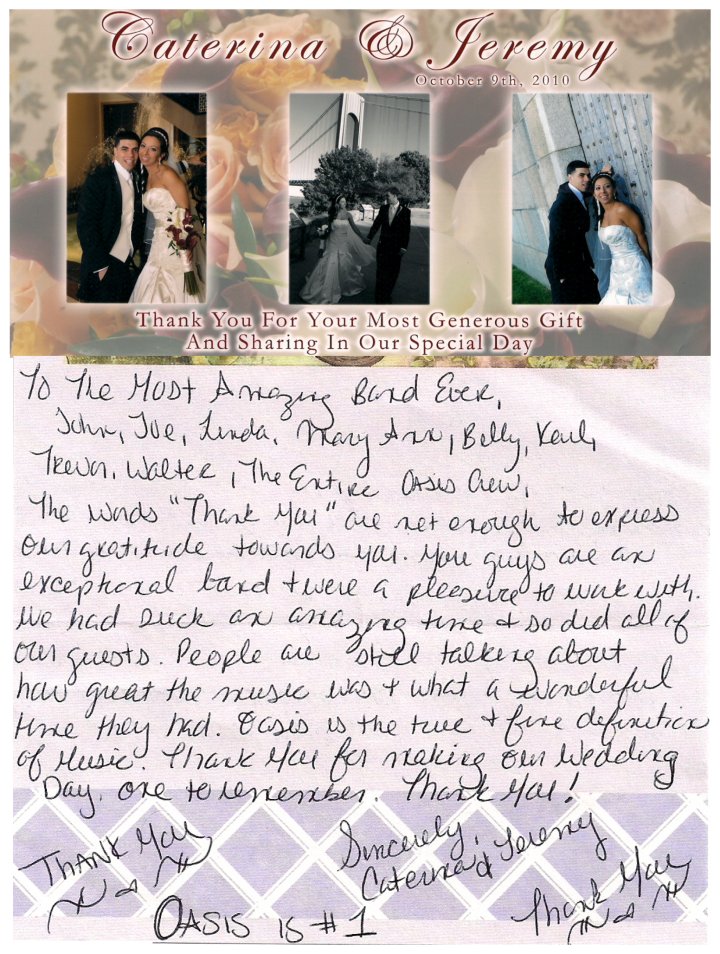 Caterina & Jeremy
October 9th, 2010
Thank You For Your Most Generous Gift
And Sharing In Our Special Day
To The Most Amazing Band Ever,
John, Joe, Linda, Mary Ann, Billy, Karl,
Trevor, Walter, The Entire Oasis Crew,
The words "Thank You" are not enough to express
our gratitude towards you. You guys are an
exceptional band + were a pleasure to work with.
We had such an amazing time + so did all of
our guests. People are still talking about
how great the music was + what a wonderful
time they had. Oasis is the true + fine definition
of Music. Thank You for making our Wedding
Day, one to remember. Thank You!
Sincerely,
Caterina & Jeremy
THANK YOU
Thank You
OASIS is #1